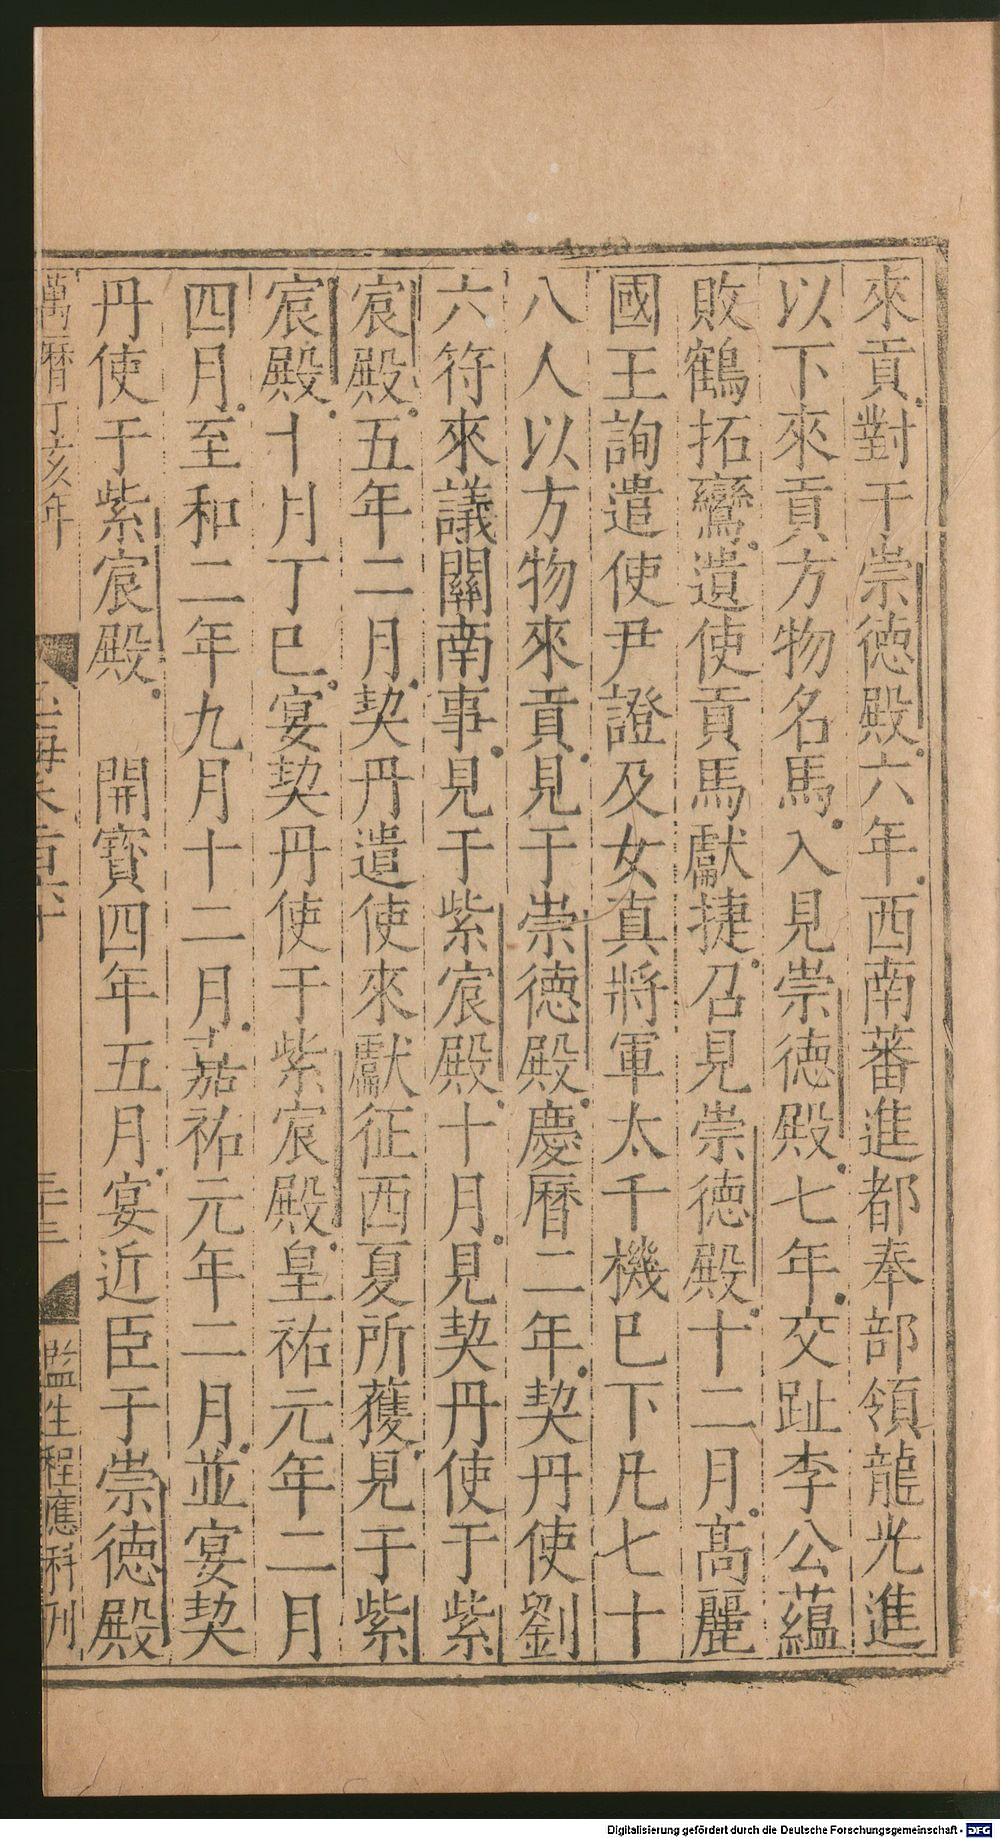 來貢對于崇德殿六年西南蕃進都奉部領龍光進
以下來貢方物名馬入見崇德殿七年交趾李公蘊
敗鶴拓蠻遣使貢馬獻捷召見崇德殿十二月高麗
國王詢遣使尹證及女真將軍太千機已下凡七十
八人以方物來貢見于崇德殿慶曆二年契丹使劉
六符來議關南事見于紫宸殿十月見契丹使于紫
宸殿五年二月契丹遣使來獻征西夏所獲見于紫
宸殿十月丁巳宴契丹使于紫宸殿皇祐元年二月
四月至和二年九月十二月嘉祐元年二月並宴契
丹使于紫宸殿 開寶四年五月宴近臣于崇德殿
萬曆丁亥年 玉海卷百六十 三十三 監生程應科刊
Digitalisierung gefördert durch die Deutsche Forschungsgemeinschaft - DFG